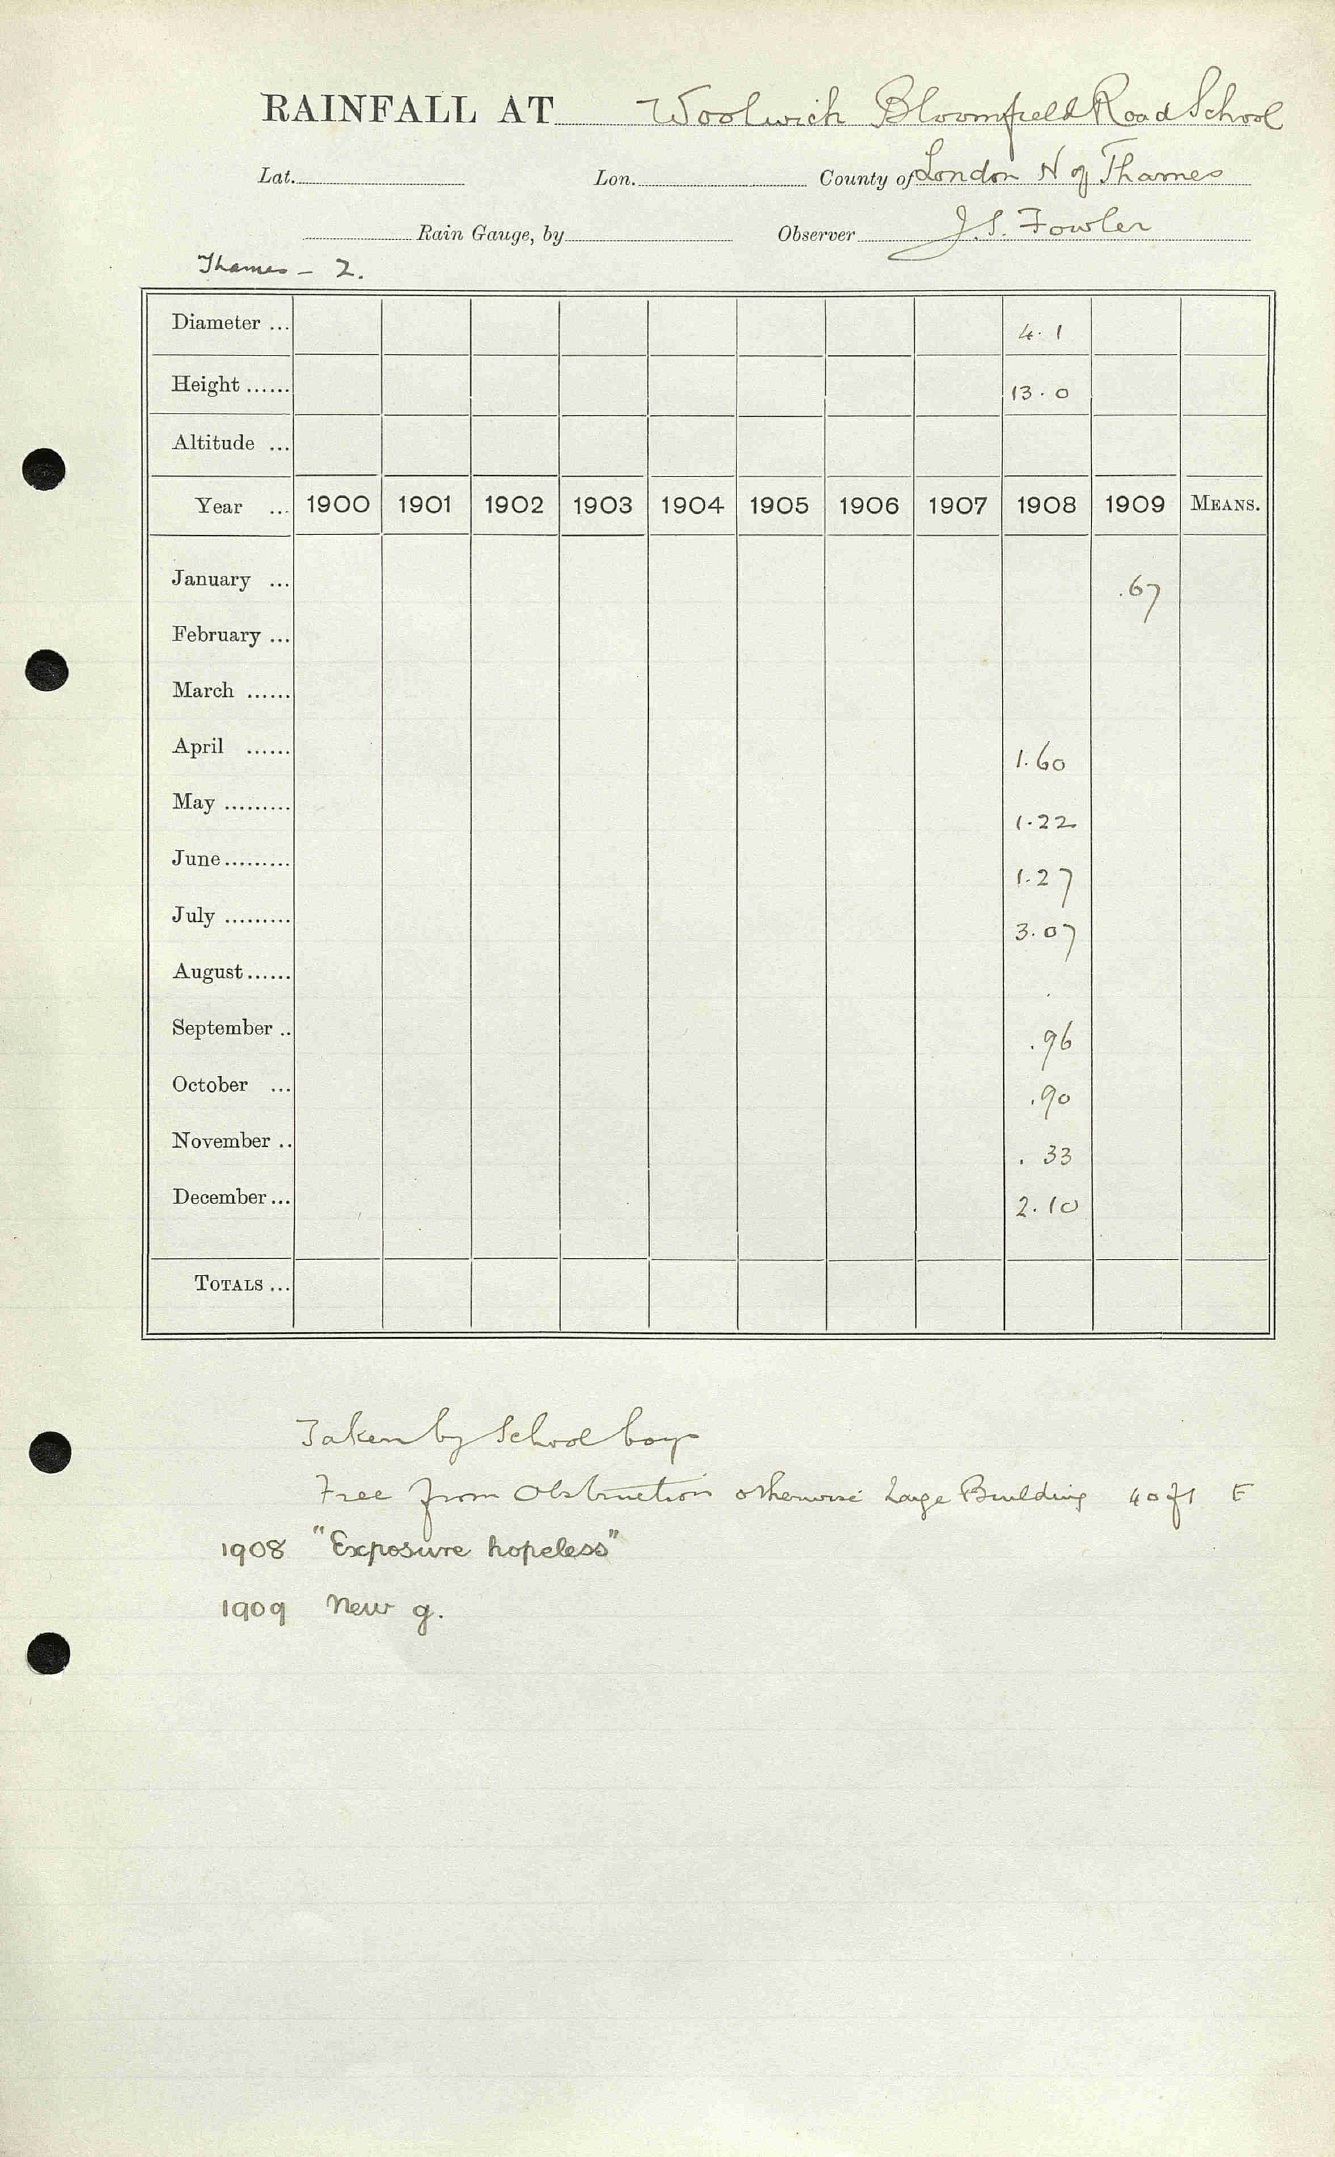 RAINFALL AT Woolwich Bloomfield Road School
Lat. Lon. County of London N of Thames
Rain Gauge, by Observer J.S. Fowler
Thames - 2.
Diameter ... 4.1
Height ...... 13.0
Altitude ...
Year ... 1900 1901 1902 1903 1904 1905 1906 1907 1908 1909 MEANS.
January ... .67
February ...
March ......
April ...... 1.60
May ......... 1.22
June ......... 1.27
July ......... 3.07
August ...... .
September .. .96
October ... .90
November .. .33
December ... 2.10
TOTALS ...
Taken by School boys
Free from Obstruction otherwise Large Building 40 ft E
1908 "Exposure hopeless"
1909 New g.